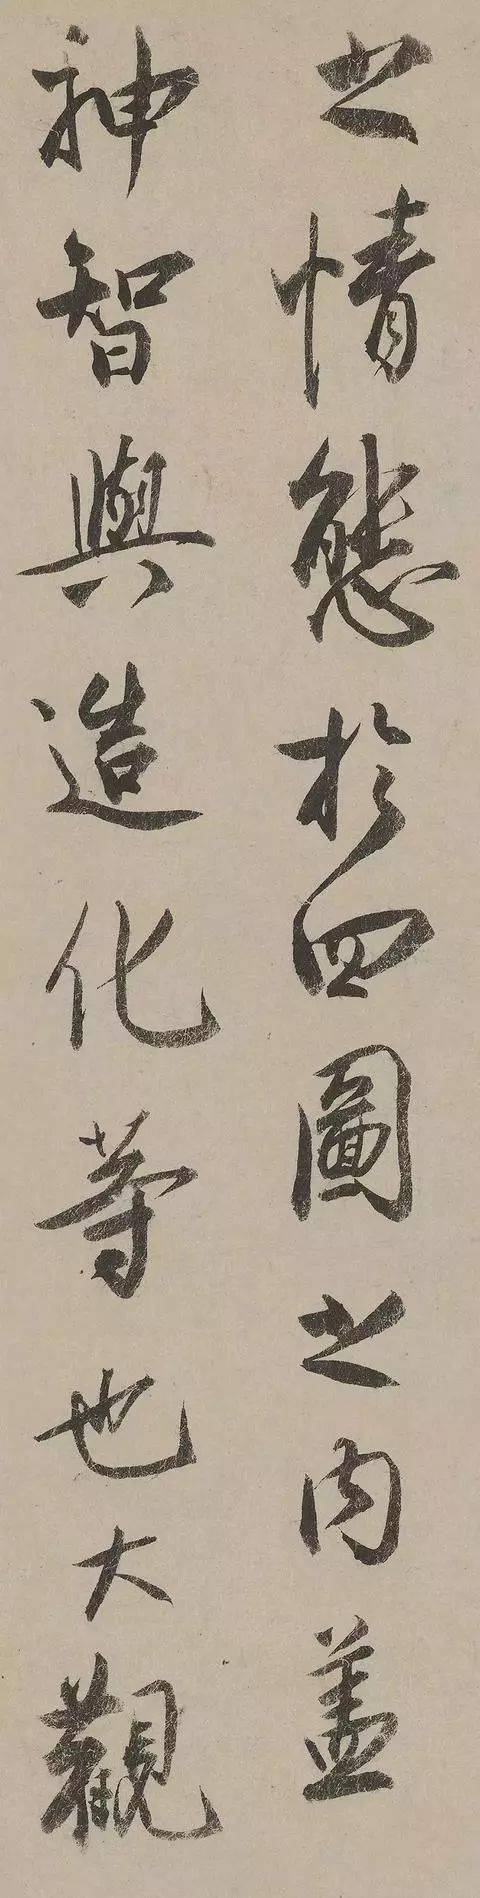 之情態於四圖之内蓋
神智與造化等也大觀